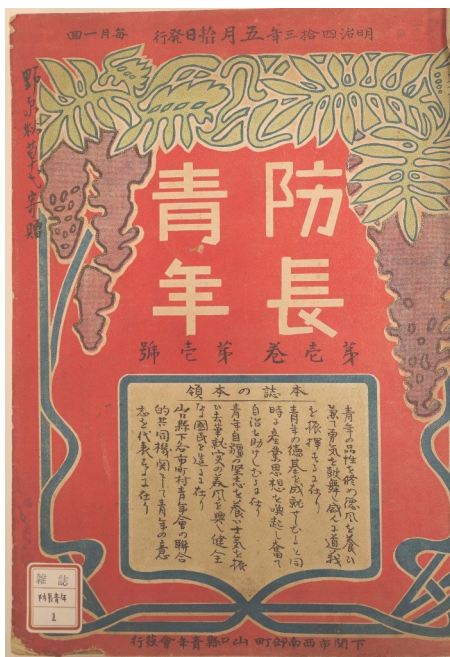 明治四拾三年五月拾日發行 每月一回
防長
青年
第壱卷 第壱號
本誌の本領
青年の品性を修め徳風を養ひ
兼て勇気を鼓舞し盛んに道義
を振揮するに在り
青年の徳基を成就せしむると同
時に産業思想を喚起し奮て
自治を助けしむるに在り
青年自彊の堅志を養ひ士気を振
ひ去華就実の美風を興し健全
なる國民を造るに在り
山口縣下各市町村青年會の聯合
的共同機関として青年の意
志を代表するに在り
下関市西南部町 山口縣青年會發行
氏寄贈
雑誌
防長青年
1